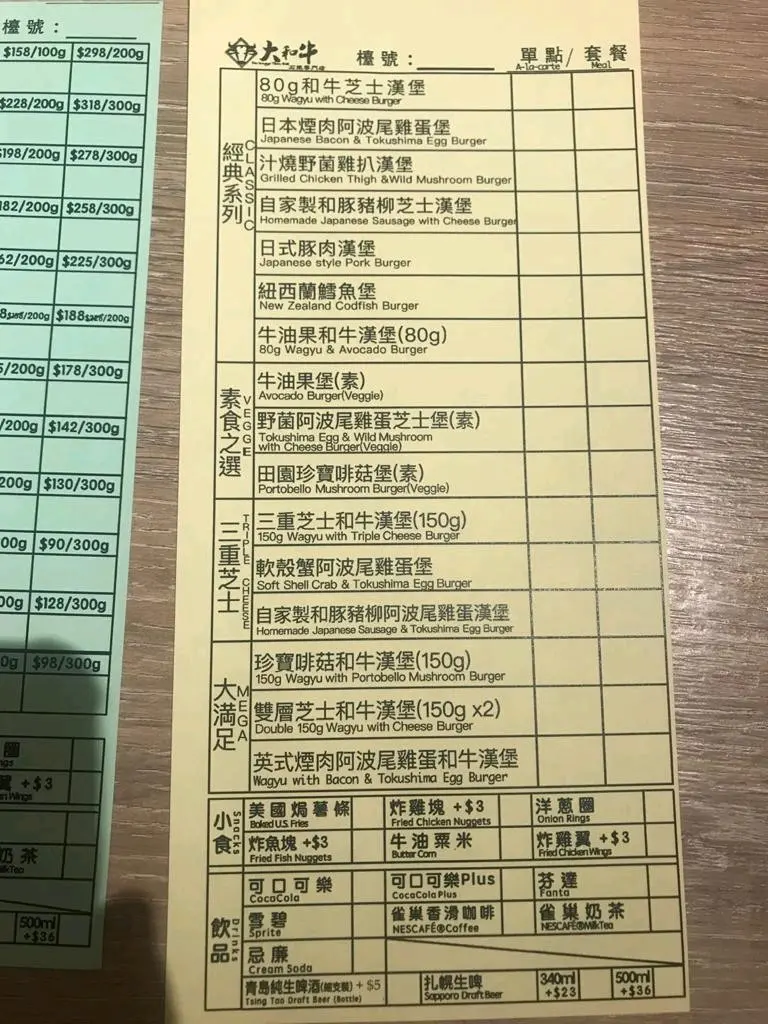 檯號:
$158/100g $298/200g
$228/200g $318/300g
$198/200g $278/300g
$258/300g
$225/300g
$188
/200g $178/300g
/200g $142/300g
$130/300g
$90/300g
$128/300g
$98/300g
圈
+$3
奶茶
500ml
+$36
大和牛 檯號: 單點/套餐
A-la-carte Meal
經典系列
CLASSIC
80g和牛芝士漢堡
80g Wagyu with Cheese Burger
日本煙肉阿波尾雞蛋堡
Japanese Bacon & Tokushima Egg Burger
汁燒野菌雞扒漢堡
Grilled Chicken Thigh &Wild Mushroom Burger
自家製和豚豬柳芝士漢堡
Homemade Japanese Sausage with Cheese Burger
日式豚肉漢堡
Japanese style Pork Burger
紐西蘭鱈魚堡
New Zealand Codfish Burger
牛油果和牛漢堡(80g)
80g Wagyu & Avocado Burger
素食之選
VEGGIE
牛油果堡(素)
Avocado Burger(Veggie)
野菌阿波尾雞蛋芝士堡(素)
Tokushima Egg & Wild Mushroom
with Cheese Burger(Veggie)
田園珍寶啡菇堡(素)
Portobello Mushroom Burger(Veggie)
三重芝士
TRIPLE CHEESE
三重芝士和牛漢堡(150g)
150g Wagyu with Triple Cheese Burger
軟殼蟹阿波尾雞蛋堡
Soft Shell Crab & Tokushima Egg Burger
自家製和豚豬柳阿波尾雞蛋漢堡
Homemade Japanese Sausage & Tokushima Egg Burger
大滿足
MEGA
珍寶啡菇和牛漢堡(150g)
150g Wagyu with Portobello Mushroom Burger
雙層芝士和牛漢堡(150g x2)
Double 150g Wagyu with Cheese Burger
英式煙肉阿波尾雞蛋和牛漢堡
Wagyu with Bacon & Tokushima Egg Burger
小食
Snacks
美國焗薯條 炸雞塊 +$3 洋蔥圈
Baked U.S. Fries Fried Chicken Nuggets Onion Rings
炸魚塊 +$3 牛油粟米 炸雞翼 +$3
Fried Fish Nuggets Butter Corn Fried Chicken Wings
飲品
Drinks
可口可樂 可口可樂Plus 芬達
CocaCola CocaCola Plus Fanta
雪碧 雀巢香滑咖啡 雀巢奶茶
Sprite NESCAFÉ®Coffee NESCAFÉ®MilkTea
忌廉
Cream Soda
青島純生啤酒(細支裝) + $5 扎幌生啤 340ml 500ml
Tsing Tao Draft Beer (Bottle) Sapporo Draft Beer +$23 +$36